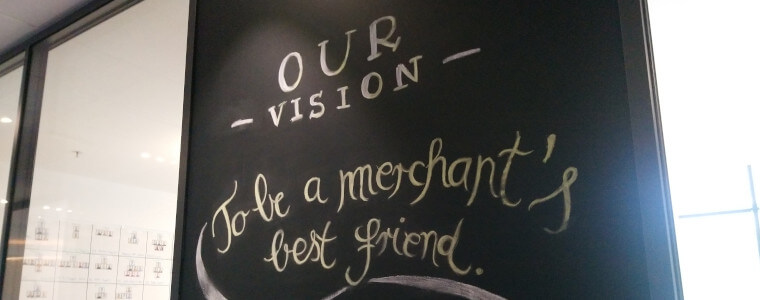 OUR
- VISION -
To be a merchant's
best friend.